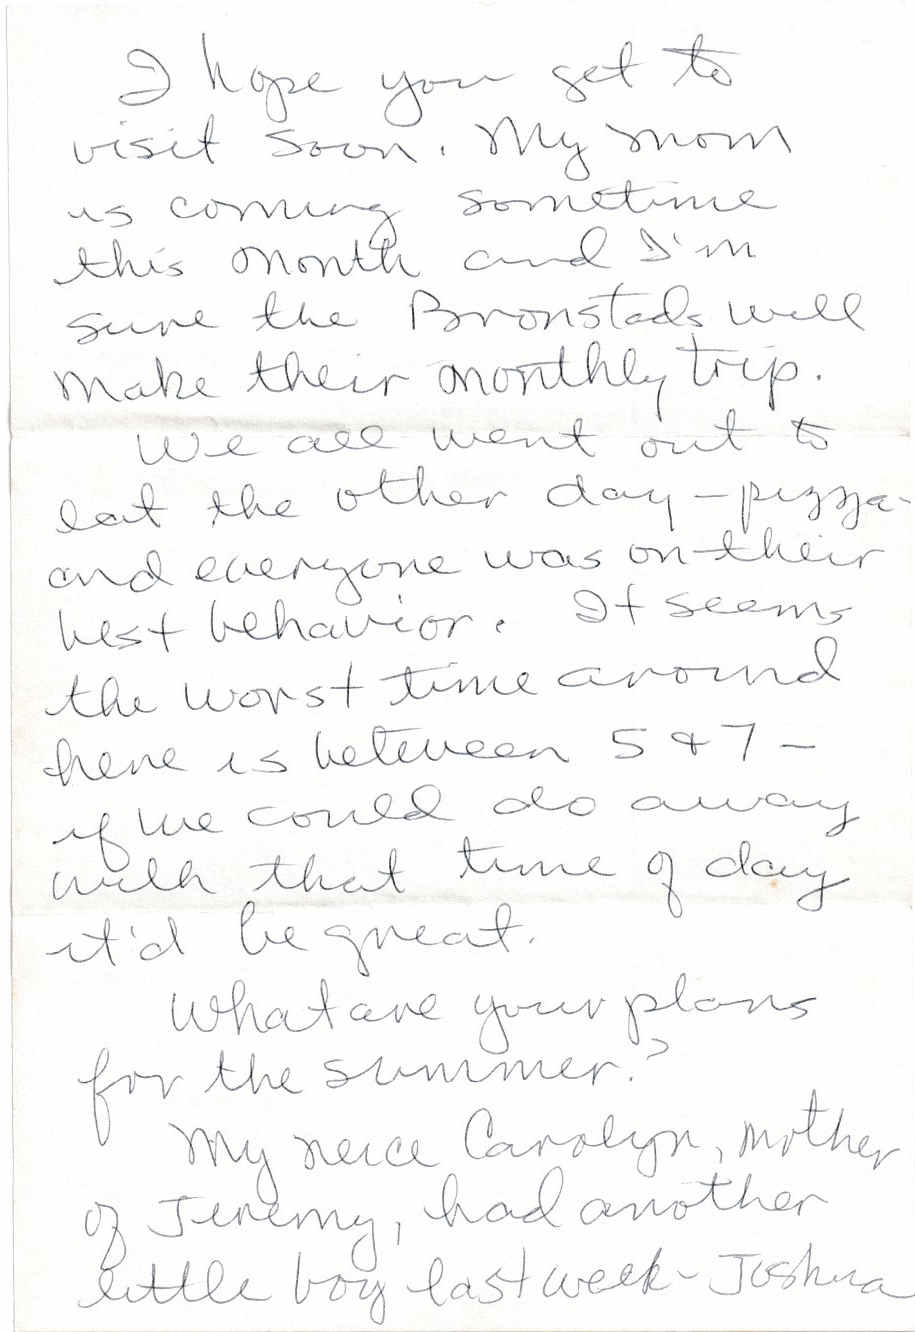 I hope you get to
visit soon. My mom
is coming sometime
this month and I'm
sure the Bronstads will
make their monthly trip.
We all went out to
eat the other day - pizza -
and everyone was on their
best behavior. It seems
the worst time around
here is between 5 & 7 -
if we could do away
with that time of day
it'd be great.
What are your plans
for the summer?
My neice Carolyn, mother
of Jeremy, had another
little boy last week - Joshua